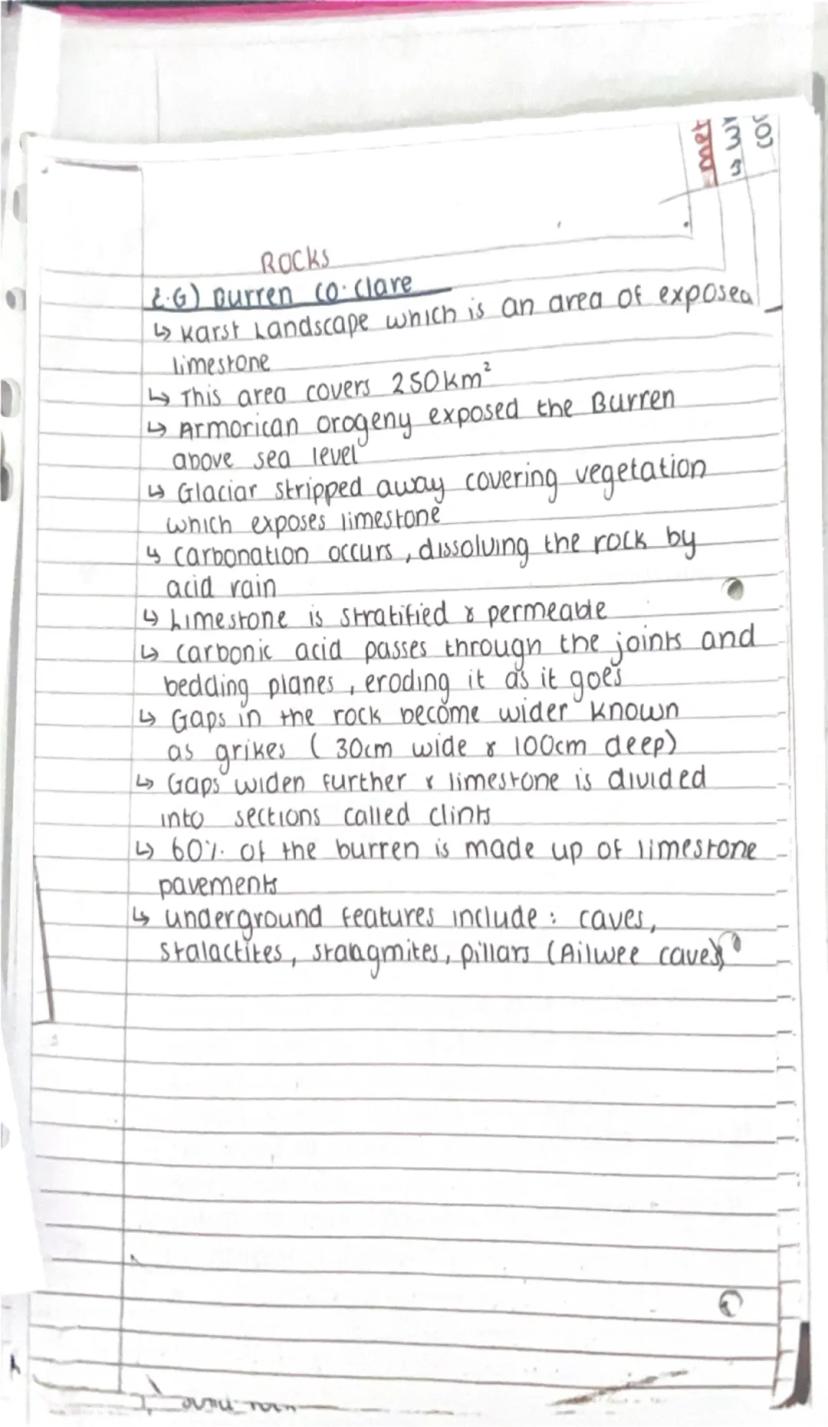 met
ROCKS
e.G) Burren CO. Clare
↳ Karst Landscape which is an area of exposed
limestone
↳ This area covers 250km²
↳ Armorican orogeny exposed the Burren
above sea level
↳ Glaciar stripped away covering vegetation
which exposes limestone
↳ carbonation occurs, dissolving the rock by
acid rain
↳ Limestone is stratified & permeable
↳ carbonic acid passes through the joints and
bedding planes, eroding it as it goes
↳ Gaps in the rock become wider known
as grikes ( 30cm wide & 100cm deep)
↳ Gaps widen further & limestone is divided
into sections called clints
↳ 60% of the burren is made up of limestone
pavements
↳ underground features include : caves,
stalactites, stalagmites, pillars (Ailwee caves)